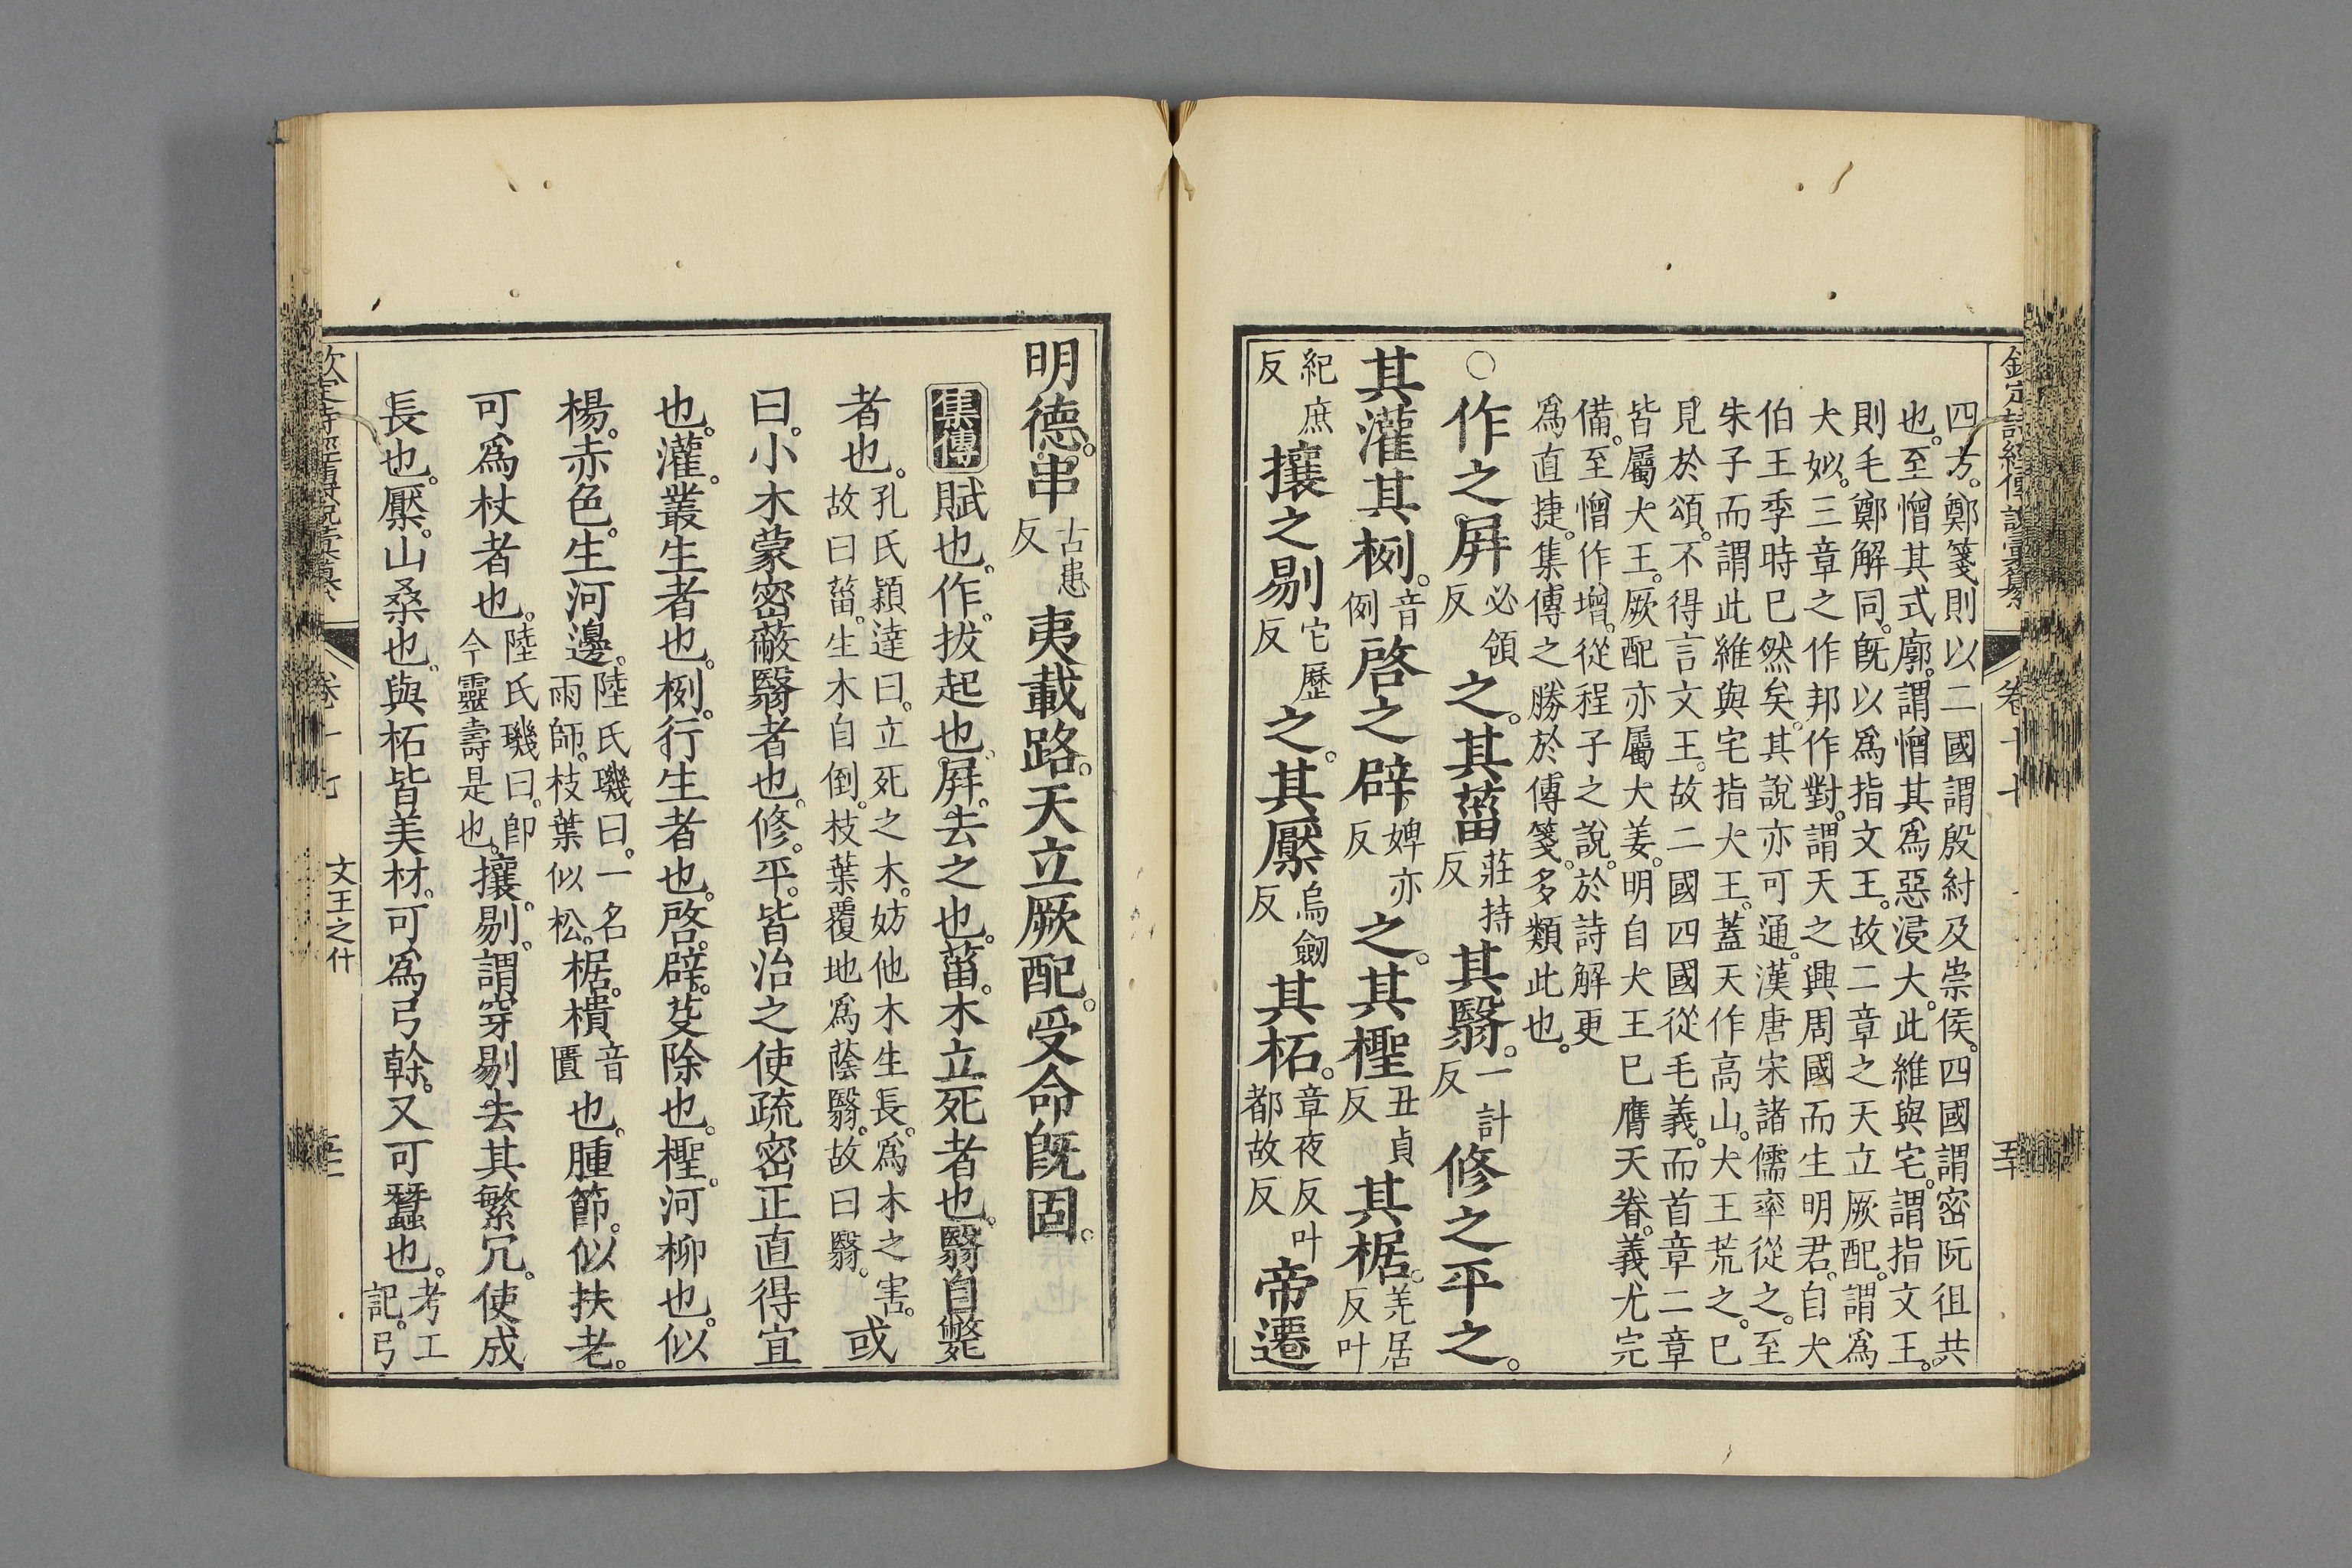 四方鄭箋則以二國謂殷紂及崇侯四國謂密阮徂共
也至憎其式廓謂憎其爲惡浸大此維與宅謂指文王
則毛鄭解同旣以爲指文王故二章之天立厥配謂爲
大姒三章之作邦作對謂天之興周國而生明君自大
伯王季時已然矣其說亦可通漢唐宋諸儒率從之至
朱子而謂此維與宅指大王蓋天作高山大王荒之已
見於頌不得言文王故二國四國從毛義而首章二章
皆屬大王厥配亦屬大姜明自大王已膺天眷義尤完
備至憎作增從程子之說於詩解更
爲直捷集傳之勝於傳箋多類此也
○作之屛必領反之其菑莊持反其翳一計反修之平之
其灌其栵音例啓之辟婢亦反之其檉丑貞反其椐羌居反叶
紀庶反攘之剔它歷反之其檿烏劒反其柘章夜反叶都故反帝遷
欽定詩經傳說彙纂
卷十七
明德串古患反夷載路天立厥配受命旣固
集傳 賦也作拔起也屛去之也菑木立死者也翳自斃
者也孔氏穎達曰立死之木妨他木生長爲木之害故曰菑生木自倒枝葉覆地爲蔭翳故曰翳或
曰小木蒙密蔽翳者也修平皆治之使疏密正直得宜
也灌叢生者也栵行生者也啓辟芟除也檉河柳也似
楊赤色生河邊陸氏璣曰一名雨師枝葉似松椐樻音匱也腫節似扶老
可爲杖者也陸氏璣曰卽今靈壽是也攘剔謂穿剔去其繁冗使成
長也檿山桑也與柘皆美材可爲弓榦又可蠶也考工記弓
卷十七
文王之什